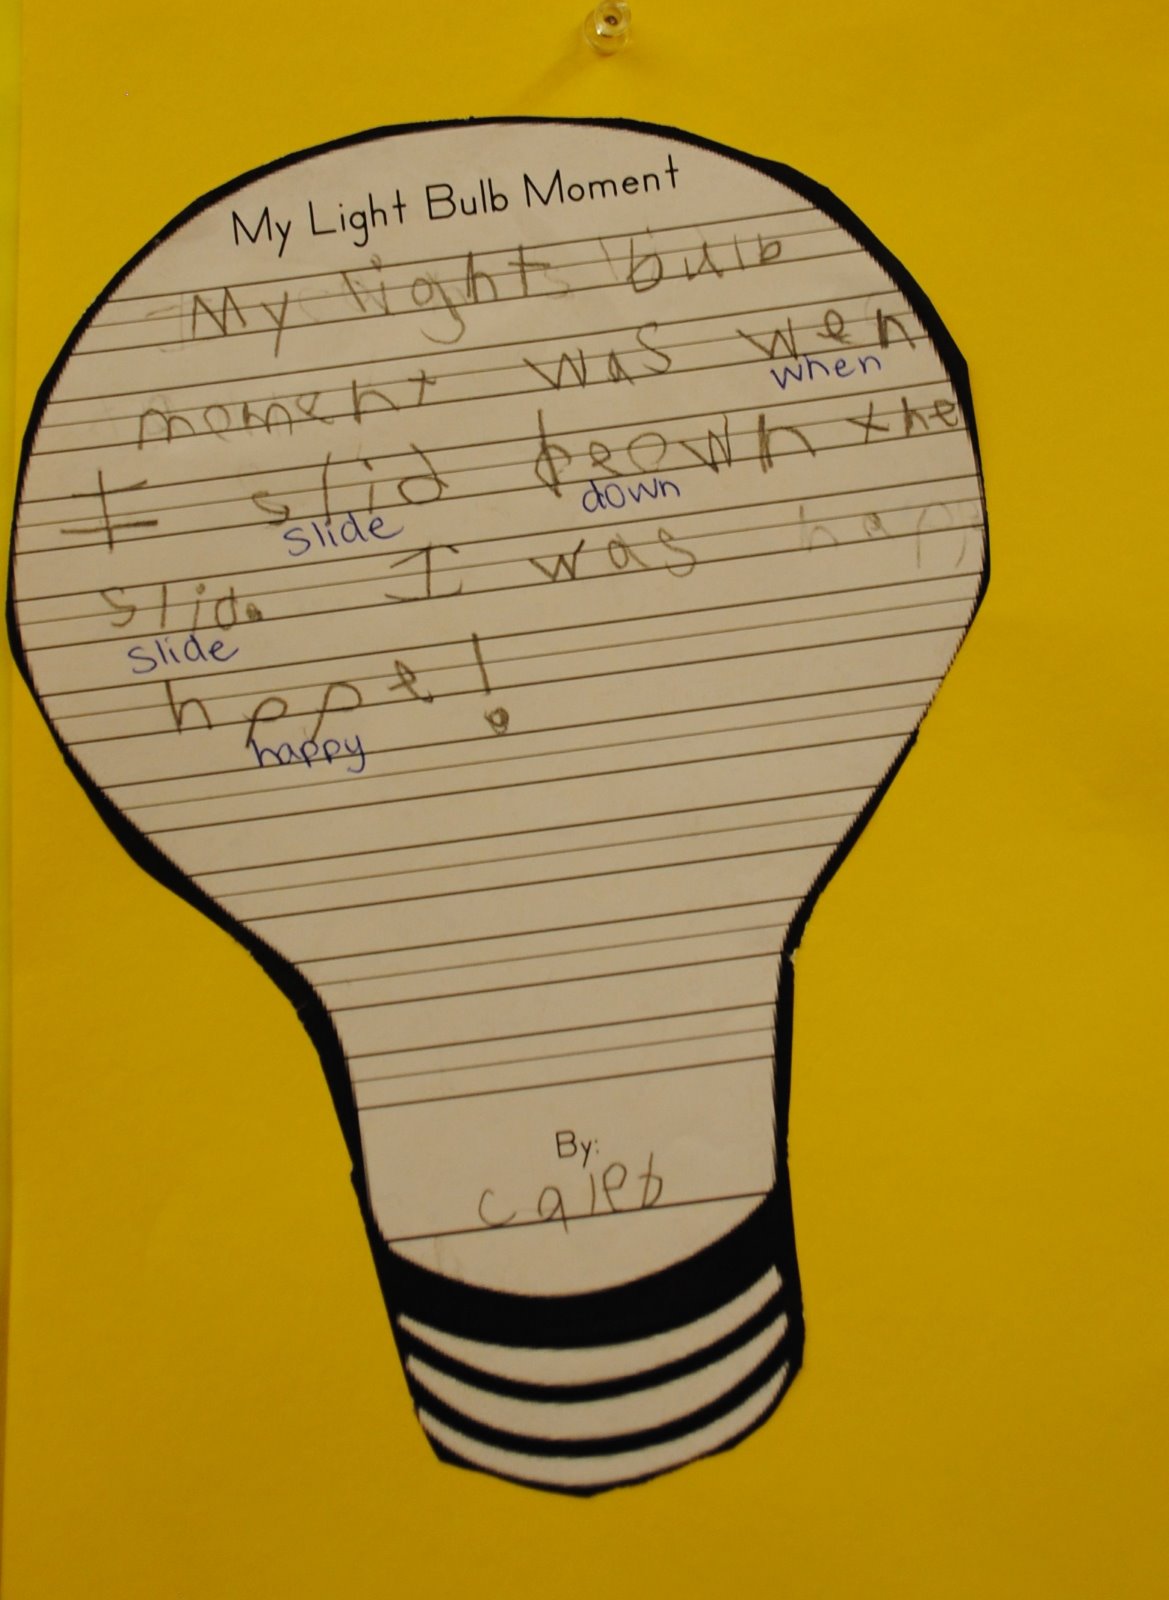 My Light Bulb Moment
My light bulb
moment was wen
when
I slid down the
slide down
slid. I was
slide
hppe!
happy
By:
caleb